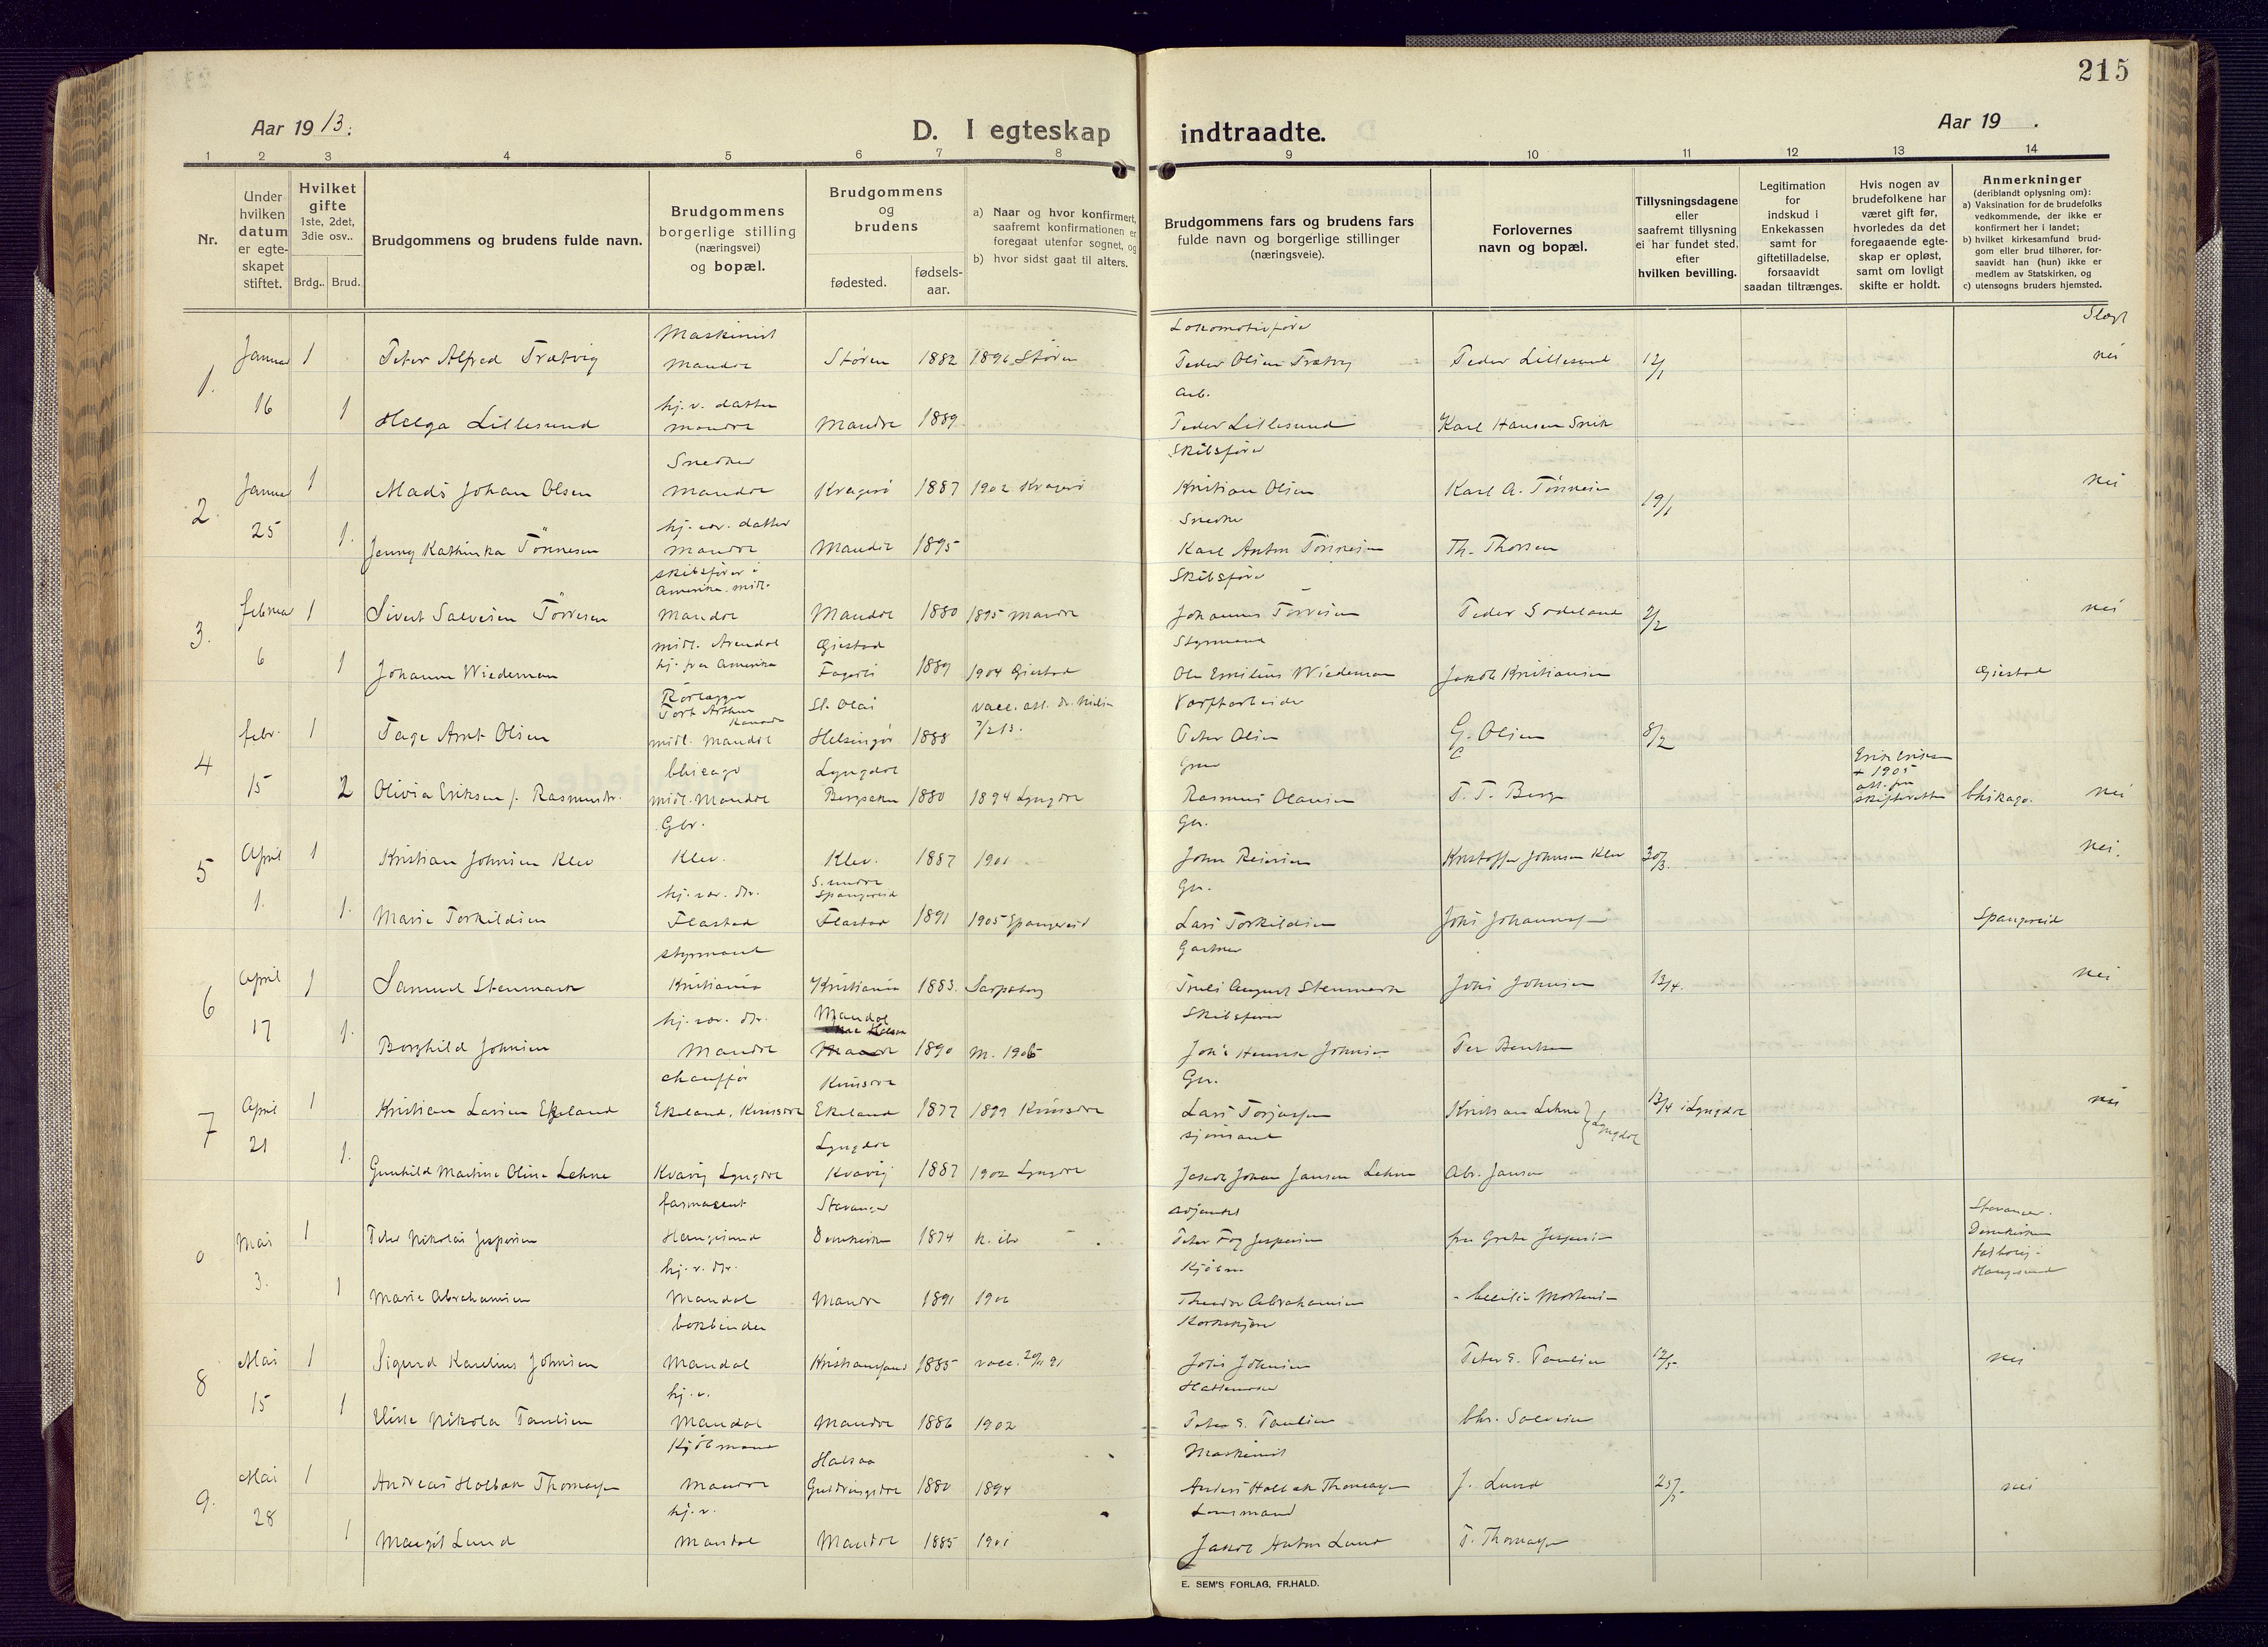 215
Aar 1913.
D. I egteskap indtraadte.
Aar 19 .
1 2 3 4 5 6 7 8 9 10 11 12 13 14
Nr.
Under hvilken datum er egteskapet stiftet.
Hvilket gifte
1ste, 2det, 3die osv..
Brdg.. Brud.
Brudgommens og brudens fulde navn.
Brudgommens borgerlige stilling (næringsvei) og bopæl.
Brudgommens og brudens
fødested. fødsels-aar.
a) Naar og hvor konfirmert, saafremt konfirmationen er foregaat utenfor sognet, og
b) hvor sidst gaat til alters.
Brudgommens fars og brudens fars
fulde navn og borgerlige stillinger
(næringsveie).
Forlovernes
navn og bopæl.
Tillysningsdagene
eller
saafremt tillysning
ei har fundet sted,
efter
hvilken bevilling.
Legitimation
for
indskud i
Enkekassen
samt for
giftetilladelse,
forsaavidt
saadan tiltrænges.
Hvis nogen av
brudefolkene har
været gift før,
hvorledes da det
foregaaende egte-
skap er opløst,
samt om lovligt
skifte er holdt.
Anmerkninger
(deriblandt oplysning om):
a) Vaksination for de brudefolks
vedkommende, der ikke er
konfirmert her i landet;
b) hvilket kirkesamfund brud-
gom eller brud tilhører, for-
saavidt han (hun) ikke er
medlem av Statskirken, og
c) utensogns bruders hjemsted.
Slegt
Maskinist Lokomotivfører
1. Januar 1 Peter Alfred Trætvig Mandal Støren 1882 1896 Støren Peder Olsen Trætvig Peder Lillesund 12/1 nei
hj. v. datter Arb.
16 1 Helga Lillesund Mandal Mandal 1889 Peder Lillesund Karl Hansen Snik
Snedker Skibsfører
2. Januar 1 Mads Johan Olsen Mandal Kragerø 1887 1902 Kragerø Kristian Olsen Karl A. Tönnesen 19/1 nei
hj. vær. datter Snedker
25 1. Jenny Kathinka Tönnesen Mandal Mandal 1895 Karl Anton Tönnesen Th. Thorsen
skibsfører i Amerika. midl. Skibsfører
3. februar 1 Sivert Salvesen Törresen Mandal Mandal 1880 1895 Mandal Johannes Törresen Peder Sodeland 2/2 nei
midl. Arendal Gjestad Styrmand
6 1 Johanne Wiedeman hj. fra Amerika 1889 1904 Gjestad Ole Emilius Wiedeman Jakob Kristiansen Gjestad
Rörlægger Port Arthur Kanada St. Olai Værftarbeider
4 febr. 1 Tage Arnt Olsen midl. Mandal Helsingør 1888 7/2 13. Peter Olsen G. Olsen 8/2
Chicago Lyngdal Erik Eriksen + 1905 att. fra skifteretten
15 2 Olivia Eriksen f. Rasmusdr. midl. Mandal 1880 1894 Lyngdal Rasmus Olausen T. T. Berge Chikago. nei
Gbr. Gbr.
5 April 1 Kristian Johnsen Klev Klev. Klev. 1887 1901 John Reiersen Kristoffer Johnsen Klev 30/3. nei.
hj. vær. dtr. S. undal Spangereid Gbr.
1. 1. Marie Torkildsen Flastad Flastad 1891 1905 Spangereid Lars Torkildsen Johs Johannesen Spangereid
styrmand Gartner
6 April 1 Samuel Stenmark Kristiania Kristiania 1883. Sarpsborg August Stenmark Johs Johnsen 13/4. nei
hj. vær. dtr. Mandal Skibsfører
17 1. Borghild Johnsen Mandal 1890 M. 1905 Johs Henrik Johnsen Per Bentsen
chauffør Kvinesdal Gbr.
7 April 1 Kristian Larsen Ekeland Ekeland, Kvinesdal Ekeland 1877 1892 Kvinesdal Lars Torjussen Kristian Lehne 13/4 i Lyngdal nei
Lyngdal sjømand Lyngdal
21 1. Gunhild Martine Oline Lehne Kvavig Lyngdal Kvavig 1887 1902 Lyngdal Jakob Johan Jansen Lehne Abr. Jansen
farmaceut Stavanger
0 Mai 1 Peter Nikolai Jespersen Haugesund Domkirken 1874 Peter Fog Jespersen fru Grete Jespersen Stavanger. Domkirken
hj. v. dtr. Kjøbm.
3. 1 Marie Abrahamsen Mandal Mandal 1891 1906 Theodor Abrahamsen - Cecilie Mortensen Haugesund
bokbinder
8 Mai 1 Sigurd Karelius Johnsen Mandal Kristiansand 1885 vacc. 20/11 91 Johs Johnsen Peter E. Paulsen 12/5 nei
hj. v. Hattemaker
15 1 Nikola Paulsen Mandal Mandal 1886 1902 Peter E. Paulsen Chr. Salvesen
Kjøbmand Halsaa Maskinist
9. Mai 1 Andreas Holbæk Thomassen Mandal 1880 1894 Anders Holbæk Thomassen J. Lund 25/5 nei
hj. v. Lensmand
28 1 Margit Lund Mandal Mandal 1885 1901 Jakob Anton Lund T. Thomassen
E. SEM'S FORLAG, FR.HALD.